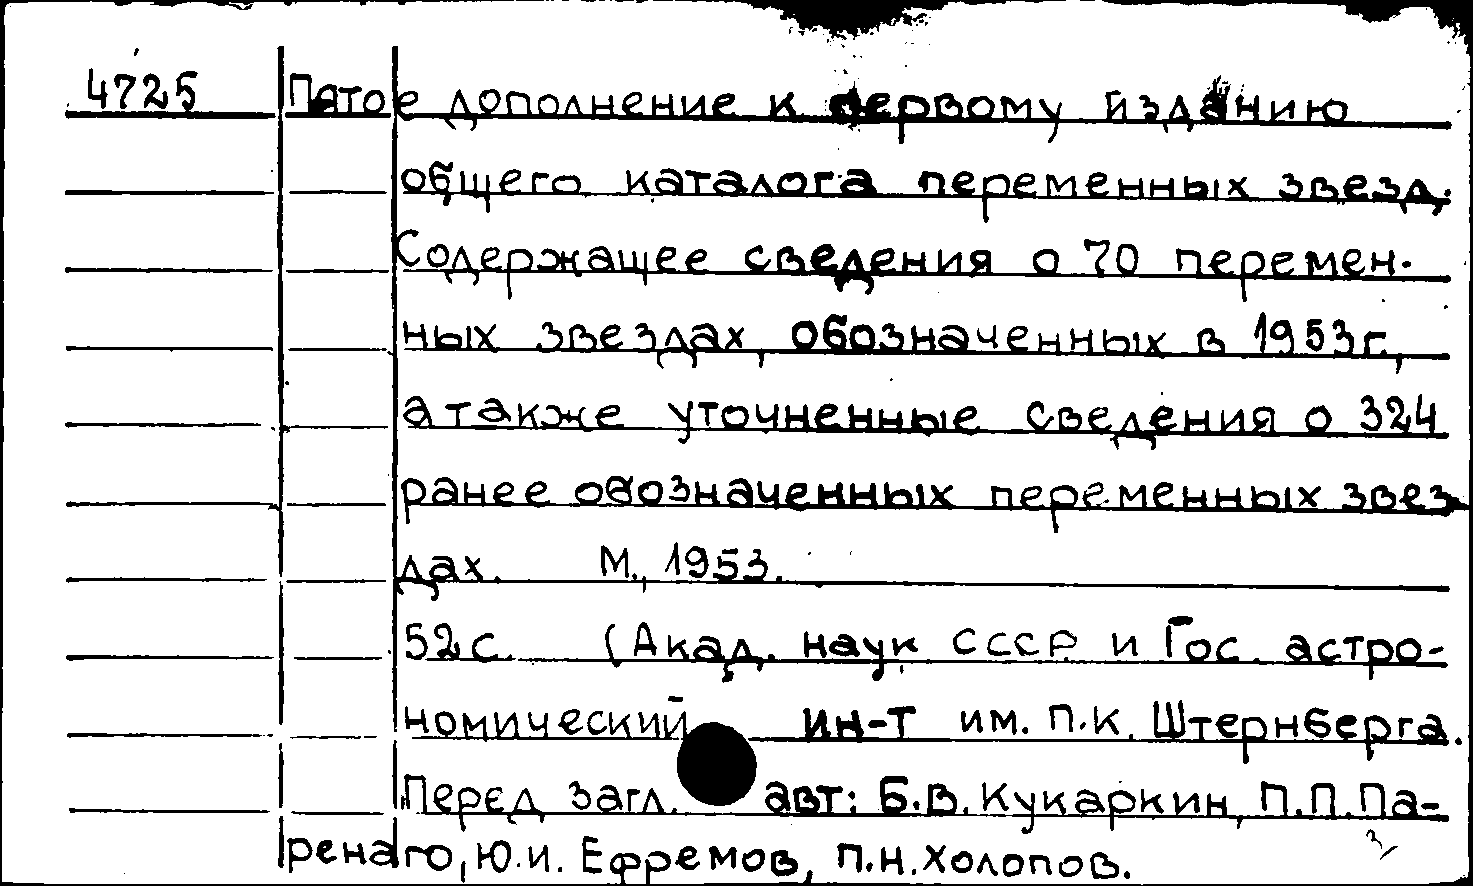 4725 Пятое дополнение к первому изданию
общего каталога переменных звезд,
Содержащее сведения о 70 перемен-
ных звездах, обозначенных в 1953г.,
а также уточненные сведения о 324
ранее обозначенных переменных звез
дах. М., 1953.
52с. (Акад. наук СССР и Гос. астро-
номический ин-т им. П.К. Штернберга.
Перед загл. авт: Б.В. Кукаркин, П.П. Па-
ренаго, Ю.И. Ефремов, П.Н. Холопов.